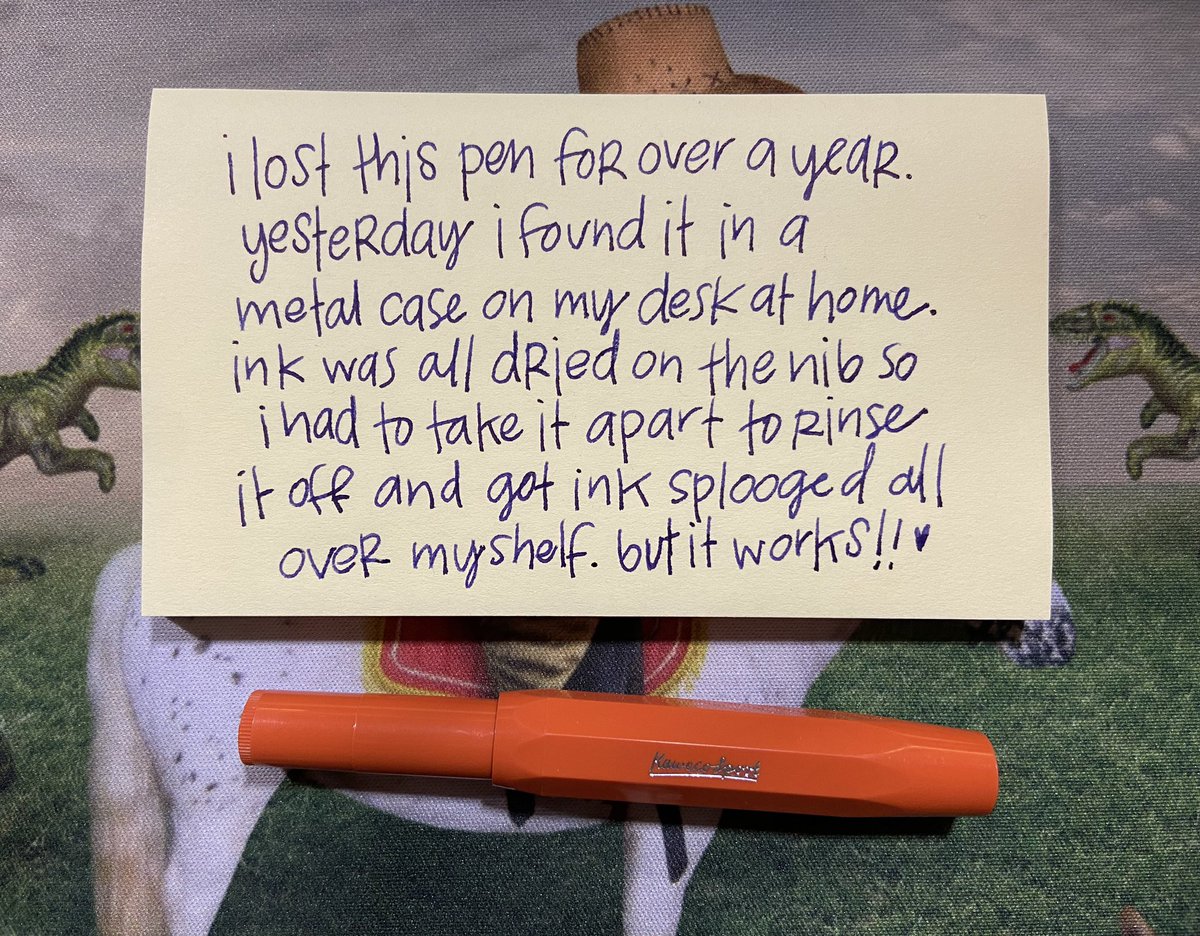 i lost this pen for over a year.
yesterday i found it in a
metal case on my desk at home.
ink was all dried on the nib so
i had to take it apart to rinse
it off and got ink splooged all
over myshelf. but it works!! ♥
Kaweco Sport